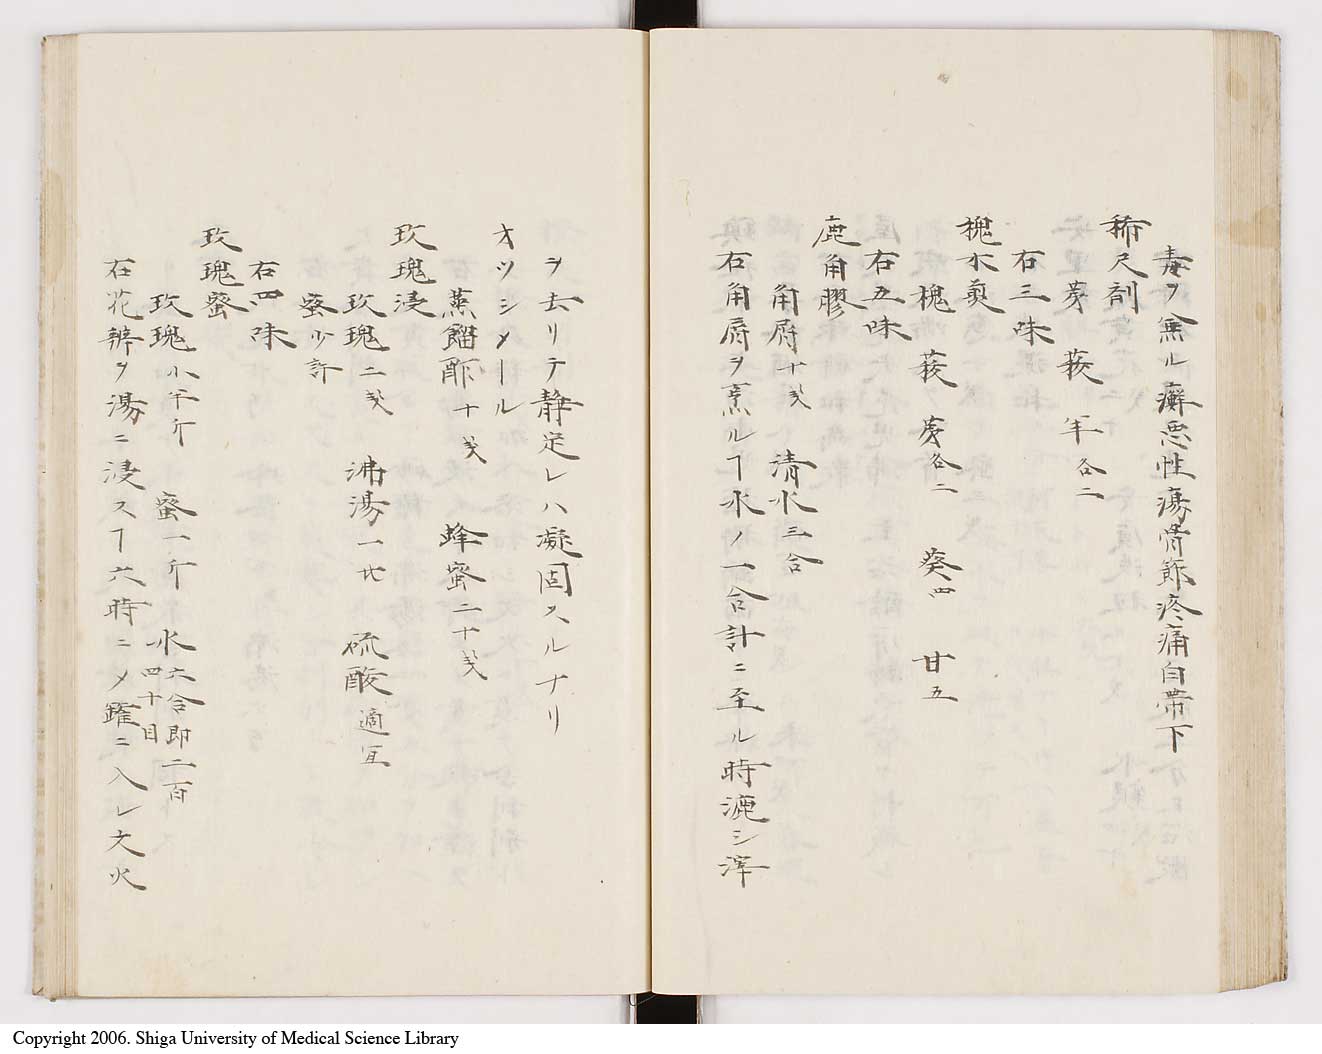 毒ヲ無ル癬悪性瘍骨節疼痛白帯下
稀尺剤
芽 菝 年各二
右三味
槐木煎
槐 菝 茂各二 葵四 甘五
右五味
鹿角膠
角屑十戔 清水三合
右角屑ヲ烹ルヿ水ノ一合計ニ至ル時漉シ滓
ヲ去リテ静定レハ凝固スルナリ
オツシメール
蒸餾酢十戔 蜂蜜二十戔
玫瑰浸
玫瑰二戔 沸湯一 硫酸適宜
蜜少許
右四味
玫瑰蜜
玫瑰小半斤 蜜一斤 水六合即二百四十目
右花弁ヲ湯ニ浸スヿ六時ニメ鑵ニ入レ文火
Copyright 2006. Shiga University of Medical Science Library